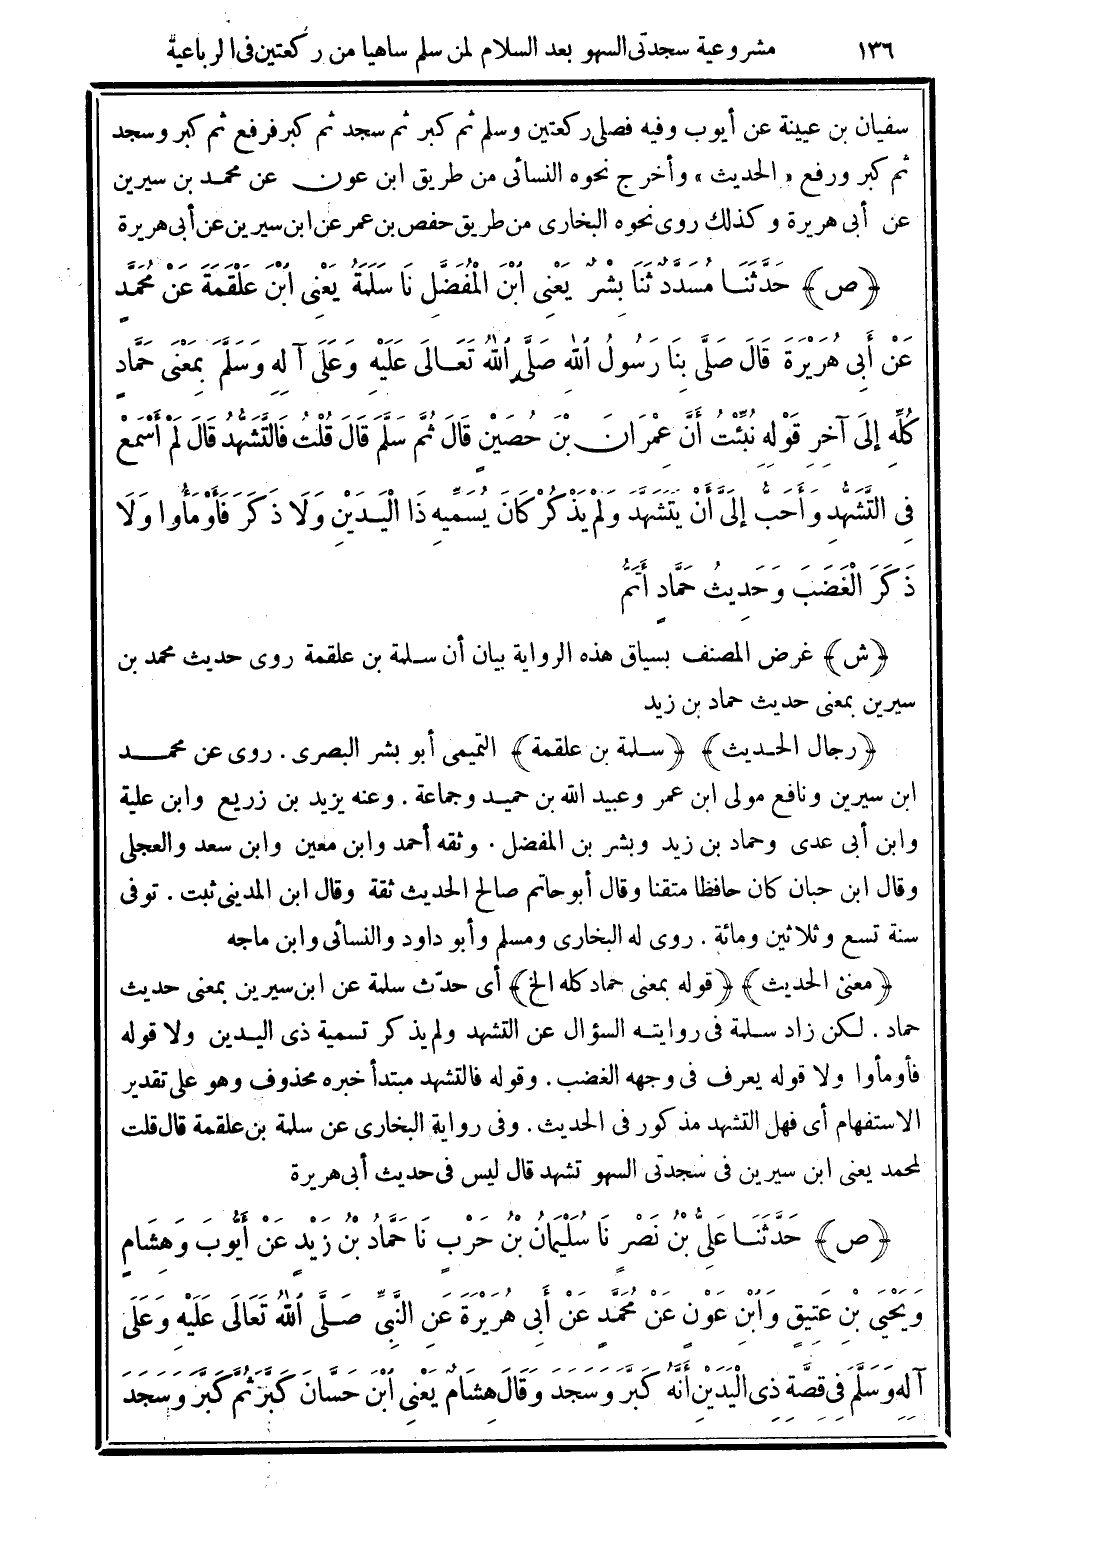 ١٣٦ مشروعية سجدتى السهو بعد السلام لمن سلم ساهيا من ركعتين فى الرباعية
سفيان بن عيينة عن أيوب وفيه فصلى ركعتين وسلم ثم كبر ثم سجد ثم كبر فرفع ثم كبر وسجد
ثم كبر ورفع «الحديث» وأخرج نحوه النسائى من طريق ابن عون عن محمد بن سيرين
عن أبى هريرة وكذلك روى نحوه البخارى من طريق حفص بن عمر عن ابن سيرين عن أبى هريرة
﴿ص﴾ حَدَّثَنَا مُسَدَّدٌ ثَنَا بِشْرٌ يَعْنِى ابْنَ الْمُفَضَّلِ نَا سَلَمَةُ يَعْنِى ابْنَ عَلْقَمَةَ عَنْ مُحَمَّدٍ
عَنْ أَبِى هُرَيْرَةَ قَالَ صَلَّى بِنَا رَسُولُ اللهِ صَلَّى اللهُ تَعَالَى عَلَيْهِ وَعَلَى آلِهِ وَسَلَّمَ بِمَعْنَى حَمَّادٍ
كُلِّهِ إِلَى آخِرِ قَوْلِهِ نُبِّئْتُ أَنَّ عِمْرَانَ بْنَ حُصَيْنٍ قَالَ ثُمَّ سَلَّمَ قَالَ قُلْتُ فَالتَّشَهُّدُ قَالَ لَمْ أَسْمَعْ
فِى التَّشَهُّدِ وَأَحَبُّ إِلَىَّ أَنْ يَتَشَهَّدَ وَلَمْ يَذْكُرْ كَانَ يُسَمِّيهِ ذَا الْيَدَيْنِ وَلَا ذَكَرَ فَأَوْمَأُوا وَلَا
ذَكَرَ الْغَضَبَ وَحَدِيثُ حَمَّادٍ أَتَمُّ
﴿ش﴾ غرض المصنف بسياق هذه الرواية بيان أن سلمة بن علقمة روى حديث محمد بن
سيرين بمعنى حديث حماد بن زيد
﴿رجال الحديث﴾ ﴿سلمة بن علقمة﴾ التميمى أبو بشر البصرى. روى عن محمد
ابن سيرين ونافع مولى ابن عمر وعبيد الله بن حميد وجماعة. وعنه يزيد بن زريع وابن علية
وابن أبى عدى وحماد بن زيد وبشر بن المفضل. وثقه أحمد وابن معين وابن سعد والعجلى
وقال ابن حبان كان حافظا متقنا وقال أبوحاتم صالح الحديث ثقة وقال ابن المدينى ثبت. توفى
سنة تسع وثلاثين ومائة. روى له البخارى ومسلم وأبو داود والنسائى وابن ماجه
﴿معنى الحديث﴾ ﴿قوله بمعنى حماد كله الخ﴾ أى حدّث سلمة عن ابن سيرين بمعنى حديث
حماد. لكن زاد سلمة فى روايته السؤال عن التشهد ولم يذكر تسمية ذى اليدين ولا قوله
فأومأوا ولا قوله يعرف فى وجهه الغضب. وقوله فالتشهد مبتدأ خبره محذوف وهو على تقدير
الاستفهام أى فهل التشهد مذكور فى الحديث. وفى رواية البخارى عن سلمة بن علقمة قال قلت
لمحمد يعنى ابن سيرين فى سجدتى السهو تشهد قال ليس فى حديث أبى هريرة
﴿ص﴾ حَدَّثَنَا عَلِىُّ بْنُ نَصْرٍ نَا سُلَيْمَانُ بْنُ حَرْبٍ نَا حَمَّادُ بْنُ زَيْدٍ عَنْ أَيُّوبَ وَهِشَامٍ
وَيَحْيَى بْنِ عَتِيقٍ وَابْنِ عَوْنٍ عَنْ مُحَمَّدٍ عَنْ أَبِى هُرَيْرَةَ عَنِ النَّبِىِّ صَلَّى اللهُ تَعَالَى عَلَيْهِ وَعَلَى
آلِهِ وَسَلَّمَ فِى قِصَّةِ ذِى الْيَدَيْنِ أَنَّهُ كَبَّرَ وَسَجَدَ وَقَالَ هِشَامٌ يَعْنِى ابْنَ حَسَّانَ كَبَّرَ ثُمَّ كَبَّرَ وَسَجَدَ